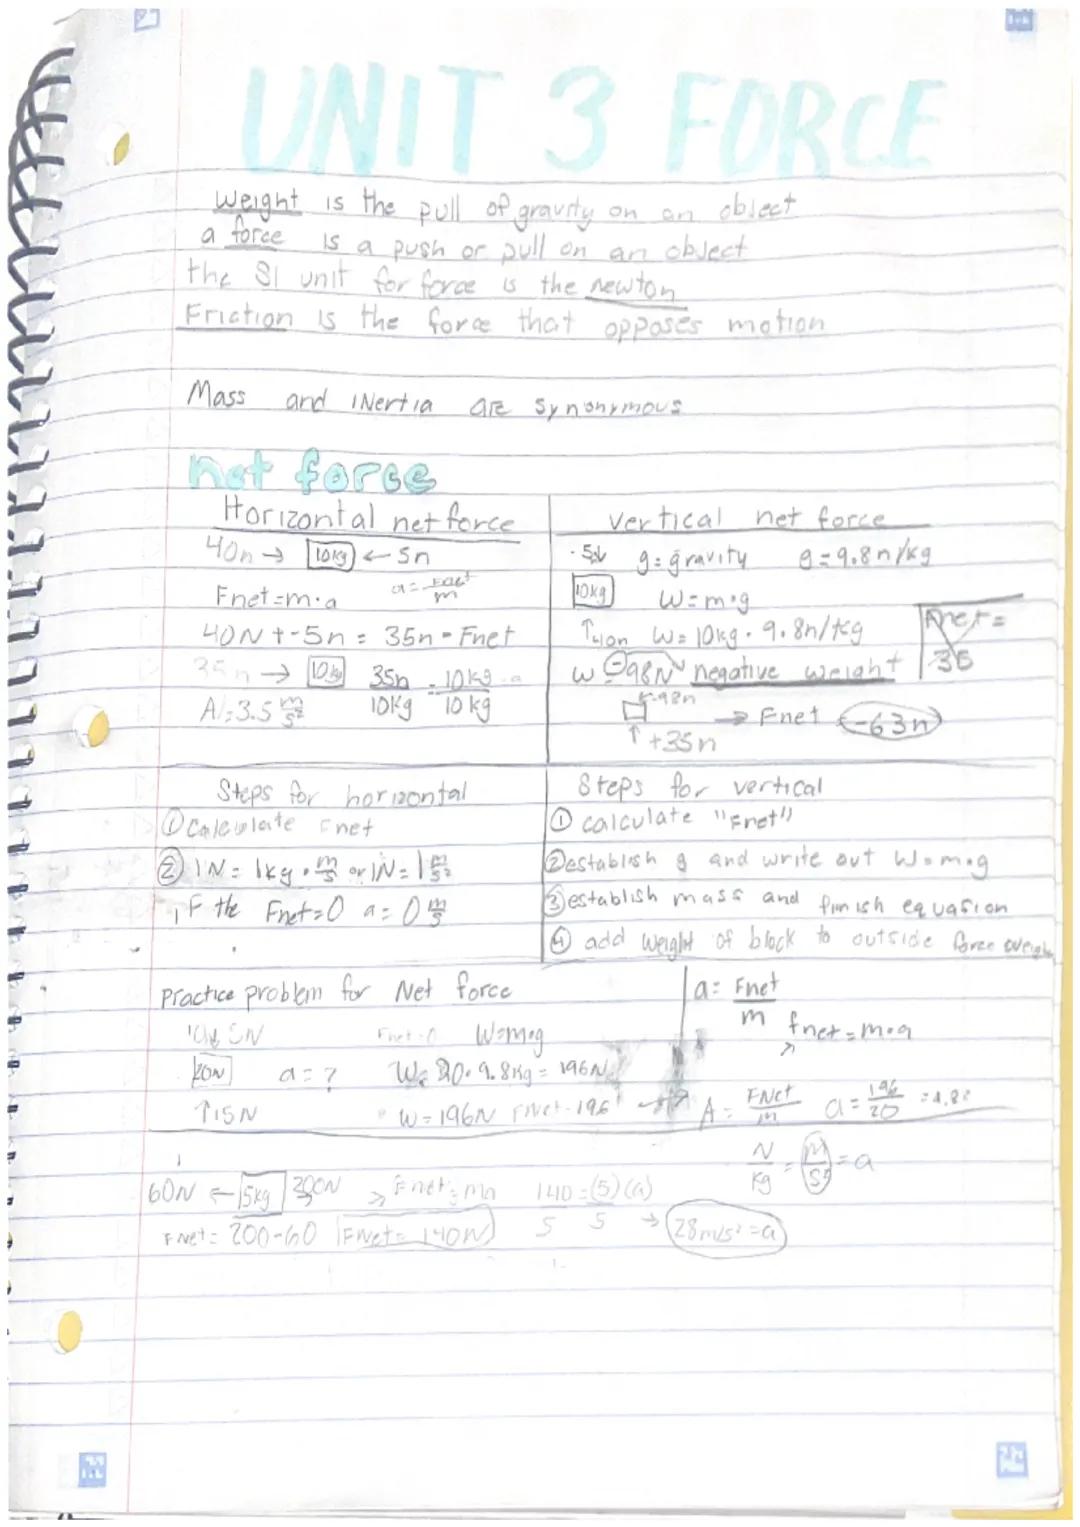 UNIT 3 FORCE
Weight is the pull of gravity on an object
a force is a push or pull on an object
the SI unit for force is the newton
Friction is the force that opposes motion
Mass and inertia are synonymous
net force
Horizontal net force
40n → 10kg ← 5n
Fnet=m·a a= Fnet/m
40N + -5n = 35n = Fnet
35n → 10kg 35n/10kg = 10kg/10kg · a
A/=3.5 m/s²
vertical net force
5n↓ g: gravity g=9.8n/kg
10kg W=m·g
↑40n W= 10kg · 9.8n/kg
Fnet = 35
w = -98N negative weight
↓-98n
→ Fnet -63n
↑+35n
Steps for horizontal
① Calculate Fnet
② 1N = 1kg · m/s or 1N = 1 m/s²
IF the Fnet=0 a= 0 m/s
Steps for vertical
① calculate "Fnet"
② establish g and write out W=m·g
③ establish mass and finish equation
④ add weight of block to outside force weight
practice problem for Net force
a= Fnet/m
fnet=m·a
5N W=m·g
20N a=? W= 20·9.8kg = 196N
↑15N W=196N Fnet-196
A= FNet/m a= 196/20
N/kg = m/s² = a
60N ← 5kg 200N → Fnet=ma 140=(5)(a)
FNet= 200-60 FNet= 140N 5 5 → 28m/s²=a